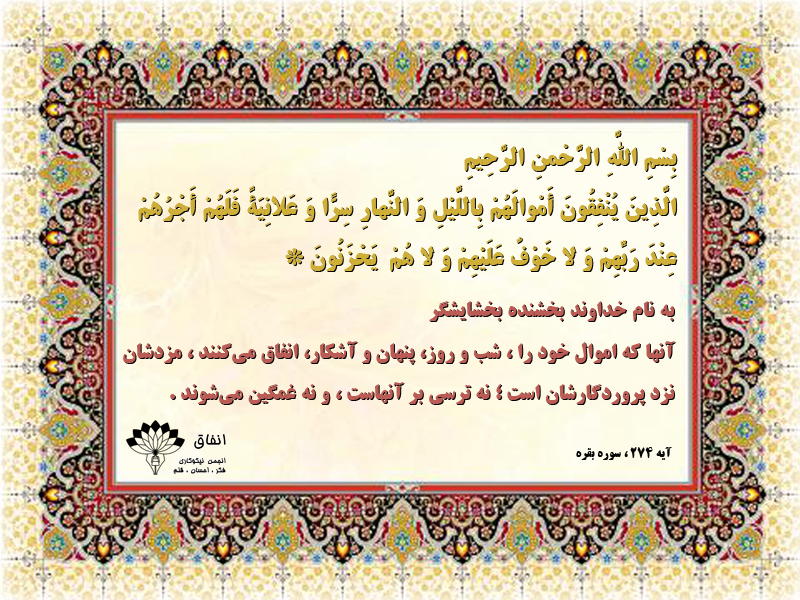 بِسْمِ اللَّهِ الرَّحْمنِ الرَّحِيمِ
الَّذِينَ يُنْفِقُونَ أَمْوالَهُمْ بِاللَّيْلِ وَ النَّهارِ سِرًّا وَ عَلانِيَةً فَلَهُمْ أَجْرُهُمْ
عِنْدَ رَبِّهِمْ وَ لا خَوْفٌ عَلَيْهِمْ وَ لا هُمْ يَحْزَنُونَ *
به نام خداوند بخشنده بخشایشگر
آنها که اموال خود را ، شب و روز، پنهان و آشکار، انفاق می‌کنند ، مزدشان
نزد پروردگارشان است ؛ نه ترسی بر آنهاست ، و نه غمگین می‌شوند .
آیه ۲۷۴، سوره بقره
انفاق
انجمن نیکوکاری
فکر ، احسان ، قلم